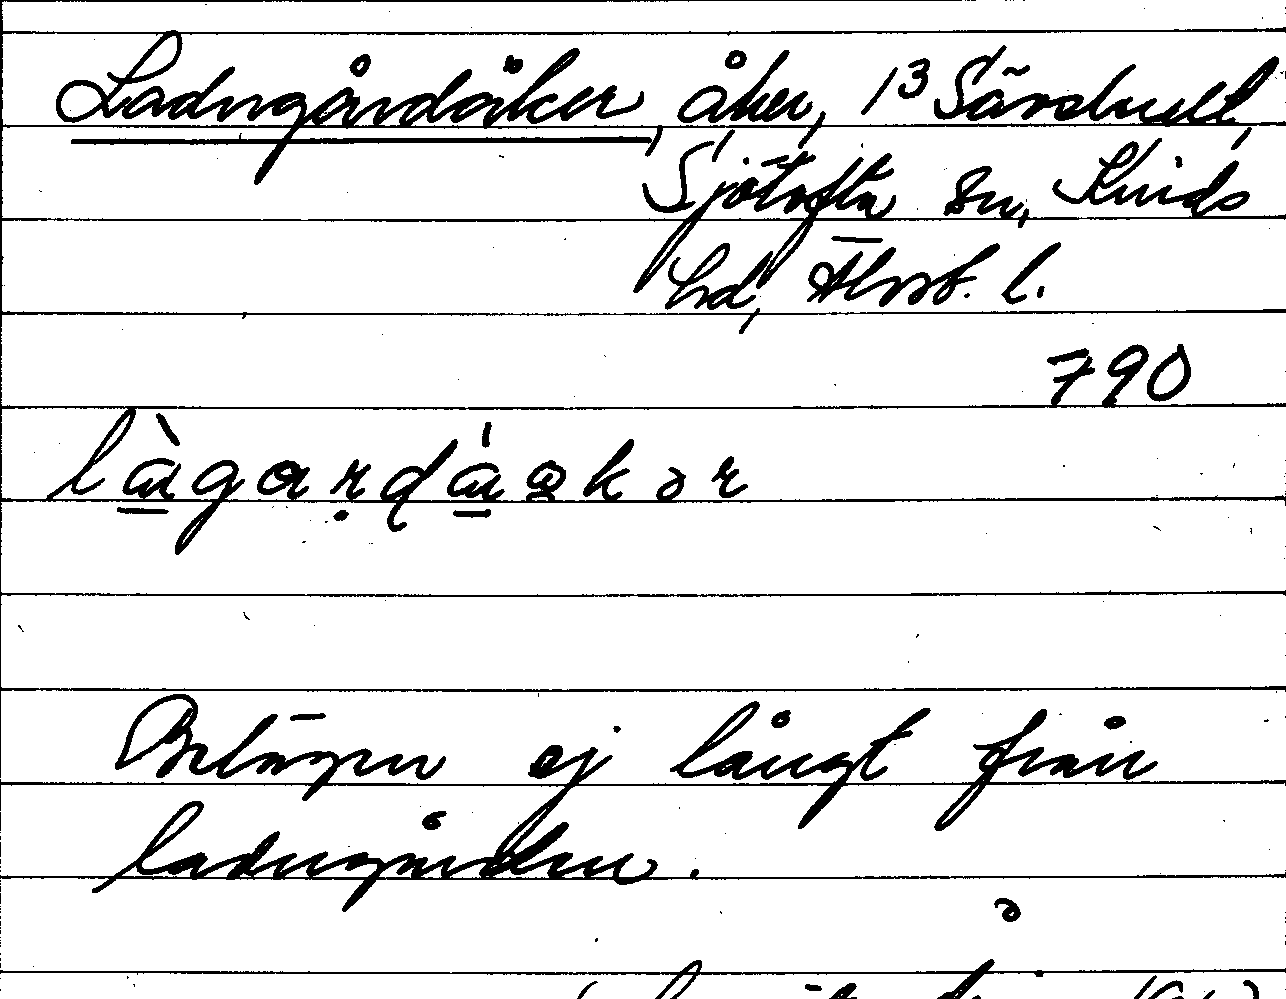 Ladugårdåker, åker, 13 Sävshult,
Sjötofta sn, Kinds
hd, Älvsb. l.
790
Belägen ej långt från
ladugården.